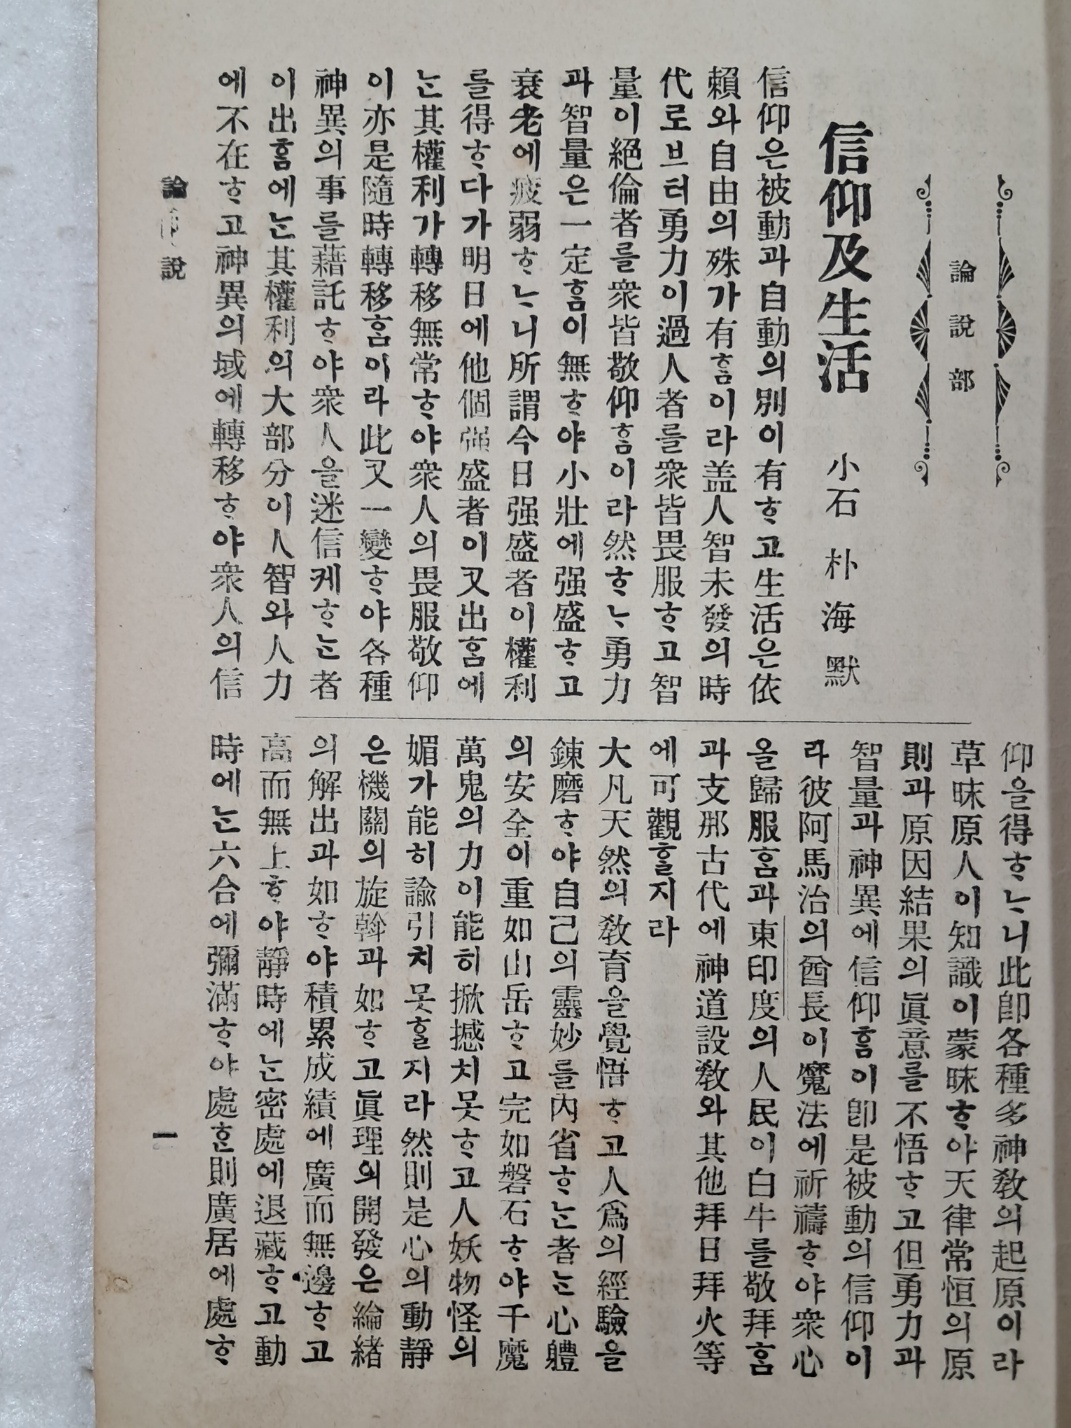 論說部
信仰及生活
小石 朴海默
信仰은被動과自動의別이有ᄒᆞ고生活은依
賴와自由의殊가有ᄒᆞᆷ이라盖人智未發의時
代로브터勇力이過人者를衆皆畏服ᄒᆞ고智
量이絕倫者를衆皆敬仰ᄒᆞᆷ이라然ᄒᆞᄂᆞ勇力
과智量은一定ᄒᆞᆷ이無ᄒᆞ야小壯에强盛ᄒᆞ고
衰老에疲弱ᄒᆞᄂᆞ니所謂今日强盛者이權利
를得ᄒᆞ다가明日에他個强盛者이又出ᄒᆞᆷ에
ᄂᆞᆫ其權利가轉移無常ᄒᆞ야衆人의畏服敬仰
이亦是隨時轉移ᄒᆞᆷ이라此又一變ᄒᆞ야各種
神異의事를藉託ᄒᆞ야衆人을迷信케ᄒᆞᄂᆞᆫ者
이出ᄒᆞᆷ에ᄂᆞᆫ其權利의大部分이人智와人力
에不在ᄒᆞ고神異의域에轉移ᄒᆞ야衆人의信
仰을得ᄒᆞᄂᆞ니此卽各種多神敎의起原이라
草昧原人이知識이蒙昧ᄒᆞ야天律常恒의原
則과原因結果의眞意를不悟ᄒᆞ고但勇力과
智量과神異에信仰ᄒᆞᆷ이卽是被動의信仰이
라彼阿馬治의酋長이魔法에祈禱ᄒᆞ야衆心
을歸服ᄒᆞᆷ과東印度의人民이白牛를敬拜ᄒᆞᆷ
과支那古代에神道設敎와其他拜日拜火等
에可觀ᄒᆞᆯ지라
大凡天然의敎育을覺悟ᄒᆞ고人爲의經驗을
鍊磨ᄒᆞ야自己의靈妙를內省ᄒᆞᄂᆞᆫ者ᄂᆞᆫ心軆
의安全이重如山岳ᄒᆞ고完如磐石ᄒᆞ야千魔
萬鬼의力이能히掀撼치못ᄒᆞ고人妖物怪의
媚가能히諭引치못ᄒᆞᆯ지라然則是心의動靜
은機關의旋斡과如ᄒᆞ고眞理의開發은綸緖
의解出과如ᄒᆞ야積累成績에廣而無邊ᄒᆞ고
高而無上ᄒᆞ야靜時에ᄂᆞᆫ密處에退藏ᄒᆞ고動
時에ᄂᆞᆫ六合에彌滿ᄒᆞ야處ᄒᆞᆫ則廣居에處ᄒᆞ
論說
一